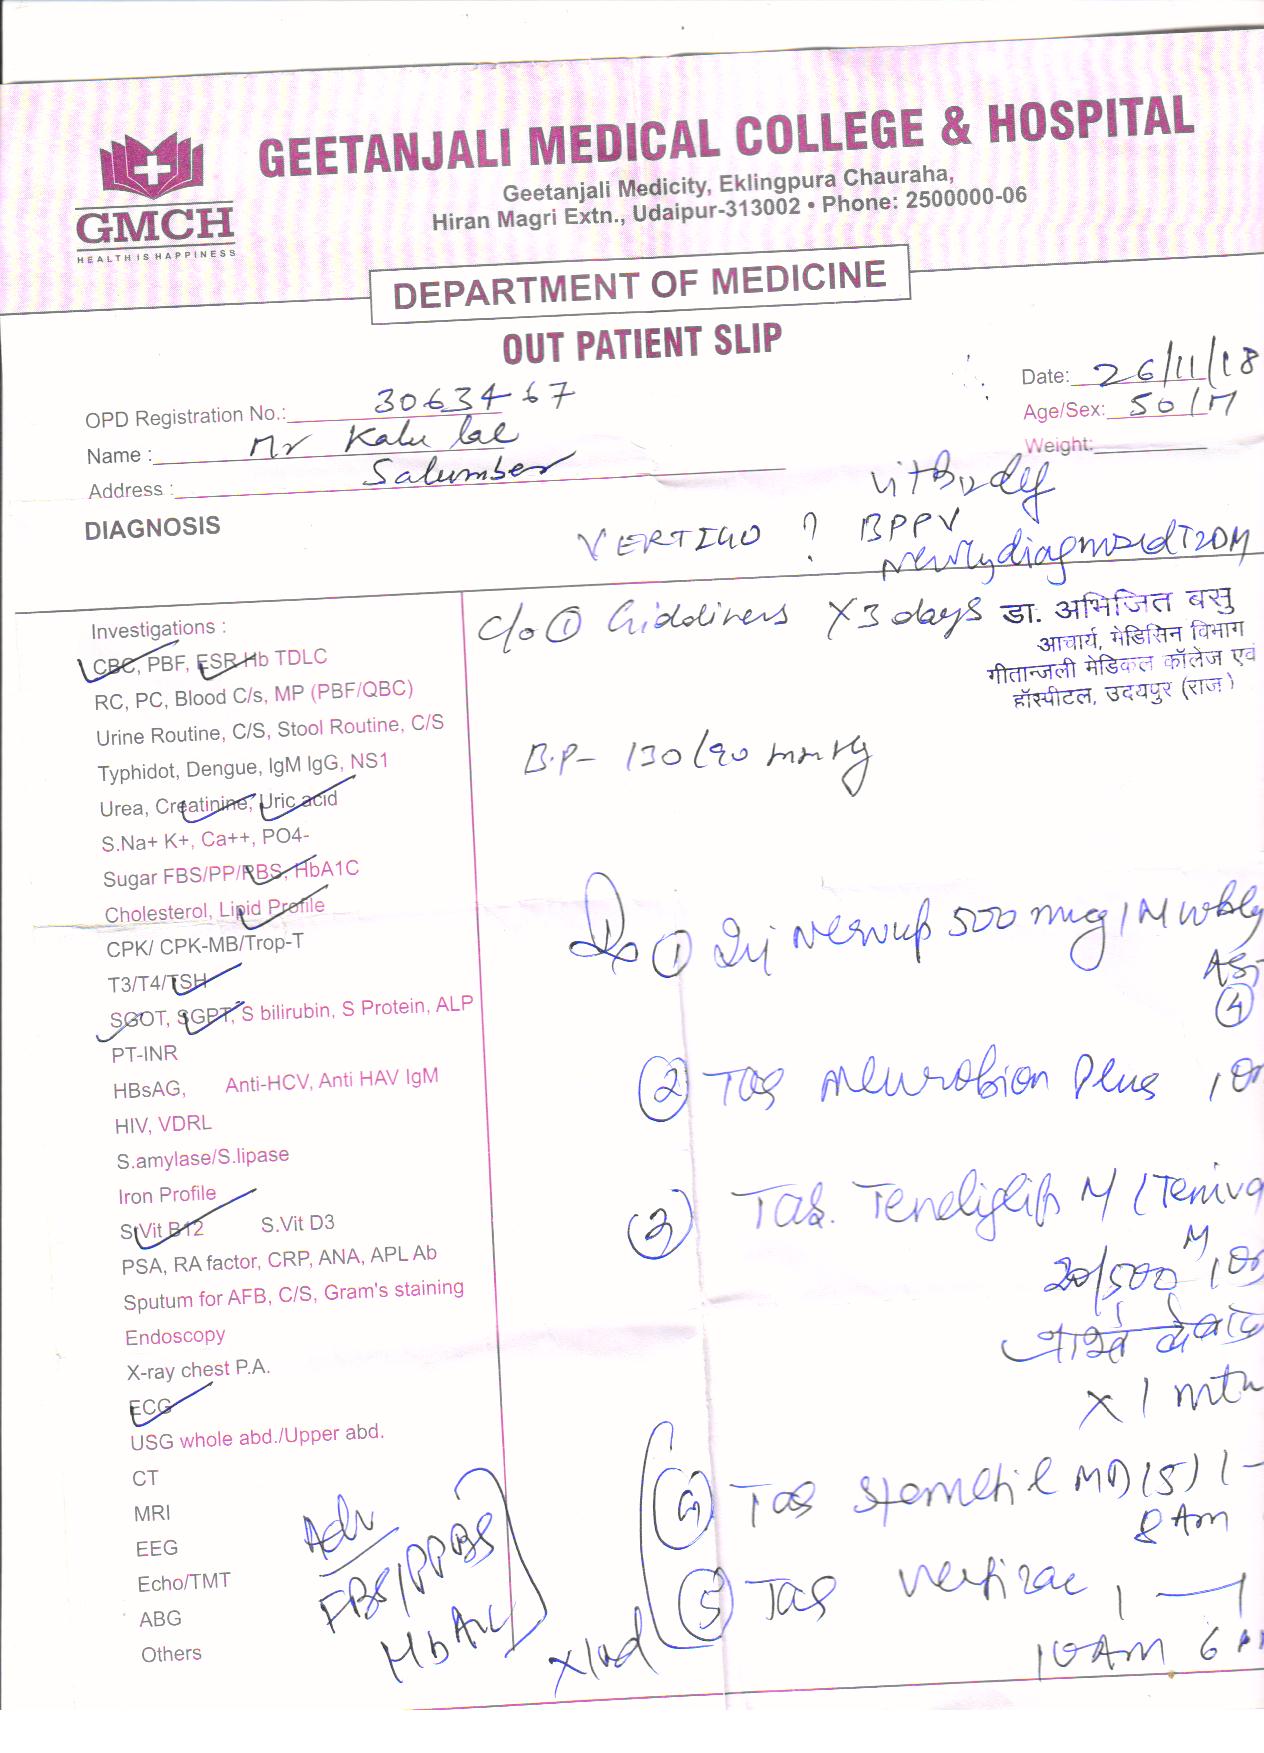 GEETANJALI MEDICAL COLLEGE & HOSPITAL
Geetanjali Medicity, Eklingpura Chauraha,
Hiran Magri Extn., Udaipur-313002 • Phone: 2500000-06
GMCH
HEALTH IS HAPPINESS
DEPARTMENT OF MEDICINE
OUT PATIENT SLIP
Date: 26/11/18
OPD Registration No.: 3063467
Age/Sex: 50/M
Name : Mr Kalu lal
Weight:
Address : Salumber
DIAGNOSIS
VERTIGO ? BPPV
newly diagnosed T2DM
c/o ① Giddiness x 3 days
डा. अभिजित बसु
आचार्य, मेडिसिन विभाग
गीतान्जली मेडिकल कॉलेज एवं
हॉस्पीटल, उदयपुर (राज)
B.P- 130/90 mmHg
Investigations :
CBC, PBF, ESR Hb TDLC
RC, PC, Blood C/s, MP (PBF/QBC)
Urine Routine, C/S, Stool Routine, C/S
Typhidot, Dengue, IgM IgG, NS1
Urea, Creatinine, Uric acid
S.Na+ K+, Ca++, PO4-
Sugar FBS/PP/RBS, HbA1C
Cholesterol, Lipid Profile
CPK/ CPK-MB/Trop-T
T3/T4/TSH
SGOT, SGPT, S bilirubin, S Protein, ALP
PT-INR
HBsAG, Anti-HCV, Anti HAV IgM
HIV, VDRL
S.amylase/S.lipase
Iron Profile
S.Vit B12 S.Vit D3
PSA, RA factor, CRP, ANA, APL Ab
Sputum for AFB, C/S, Gram's staining
Endoscopy
X-ray chest P.A.
ECG
USG whole abd./Upper abd.
CT
MRI
EEG
Echo/TMT
ABG
Others
Adv
FBS/PPBS
HbA1c
① Inj Nervup 500 mcg IM wkly
④
② Tab Neurobion Plus 1
③ Tab. Teneliglip M (Teniva
M
20/500 1
x 1 mth
④ Tab Stemetil MD (5) 1-
8 Am
⑤ Tab Vertizac 1 — 1
10 Am 6